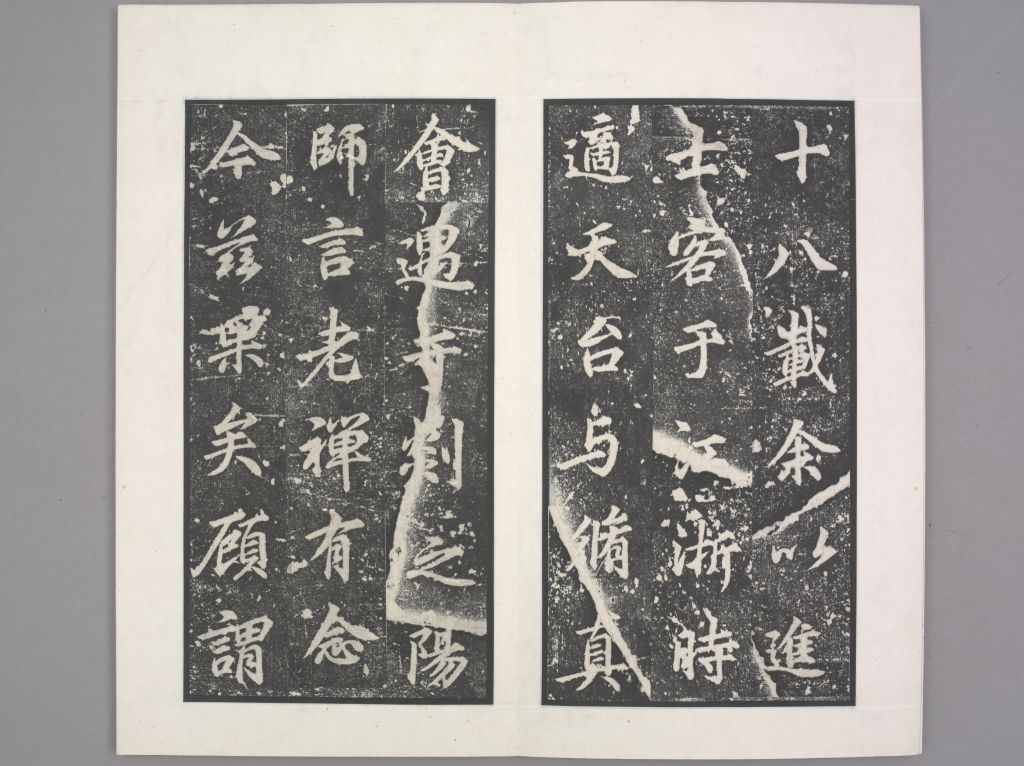 十八載余以進
士客于江浙時
適天台与脩真
會遇于剡之陽
師言老禪有念
今茲果矣顧謂